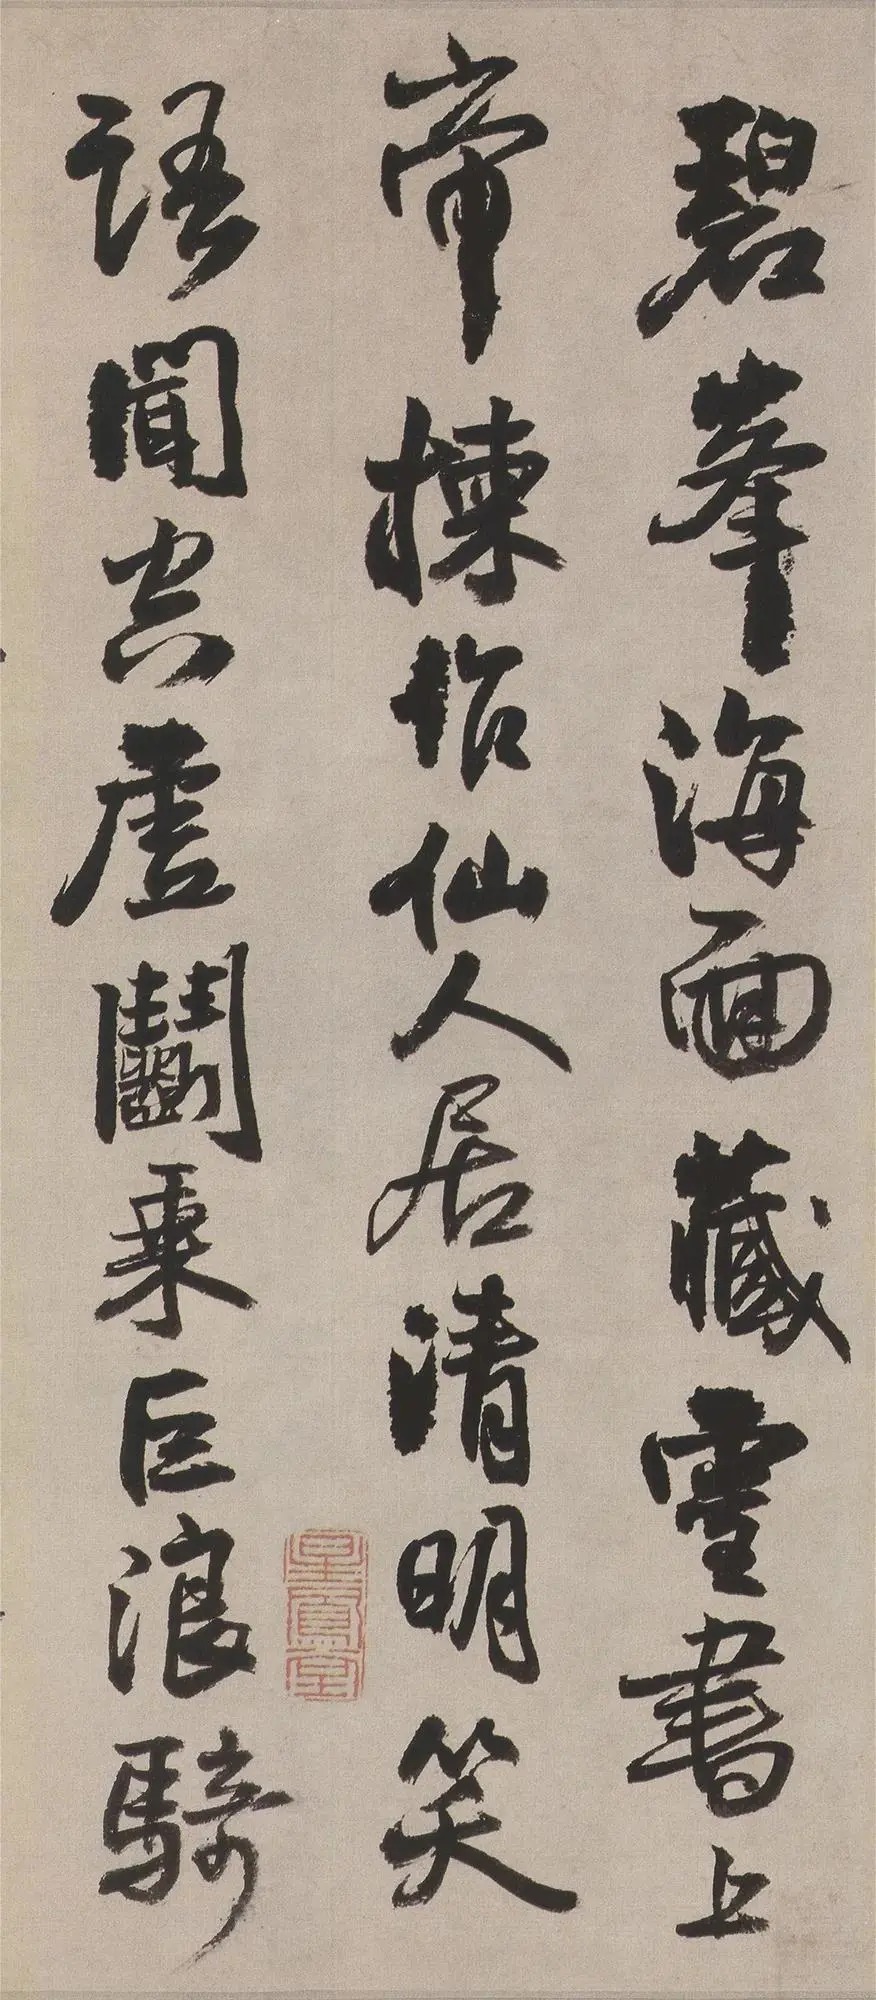 碧峯海面藏靈書上
帝揀作仙人居清明笑
語聞空虛鬭乘巨浪騎